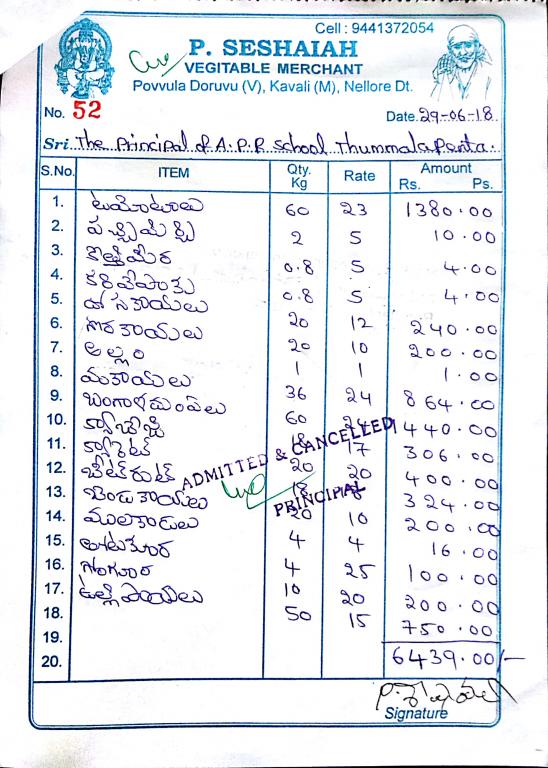 Cell : 9441372054
P. SESHAIAH
VEGITABLE MERCHANT
Povvula Doruvu (V), Kavali (M), Nellore Dt.
No. 52 Date. 29-06-18.
Sri The Principal of A.P.R School Thummala Penta.
S.No. ITEM Qty. Kg Rate Amount Rs. Ps.
1. టమోటాలు 60 23 1380.00
2. పచ్చిమిర్చి 2 5 10.00
3. కొత్తిమీర 0.8 5 4.00
4. కరివేపాకు 0.8 5 4.00
5. దోసకాయలు 20 12 240.00
6. గోరకాయలు 20 10 200.00
7. అల్లం 1 1 1.00
8. వంకాయలు 36 24 864.00
9. బంగాళదుంపలు 60 24 1440.00
10. క్యాబేజి 18 17 306.00
11. క్యారెట్ 20 20 400.00
12. బీట్‌రూట్ 18 324.00
13. బెండకాయలు 20 10 200.00
14. ములకాడలు 4 4 16.00
15. తోటకూర 4 25 100.00
16. గోంగూర 10 20 200.00
17. ఉల్లిపాయలు 50 15 750.00
18.
19.
20. 6439.00/-
ADMITTED & CANCELLED
PRINCIPAL
Signature